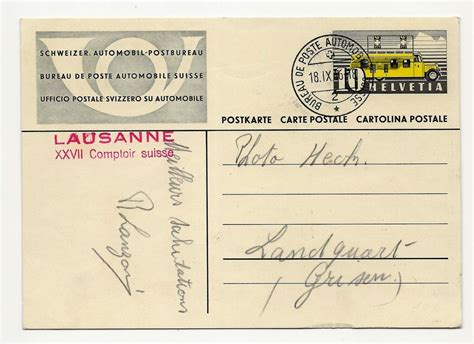 SCHWEIZER. AUTOMOBIL-POSTBUREAU
BUREAU DE POSTE AUTOMOBILE SUISSE
UFFICIO POSTALE SVIZZERO SU AUTOMOBILE
BUREAU DE POSTE AUTOMOBILE SUISSE
18.IX
2
10
HELVETIA
POSTKARTE CARTE POSTALE CARTOLINA POSTALE
LAUSANNE
XXVII Comptoir suisse
Meilleurs salutations
Photo Hech.
Landquart
(Grisen.)